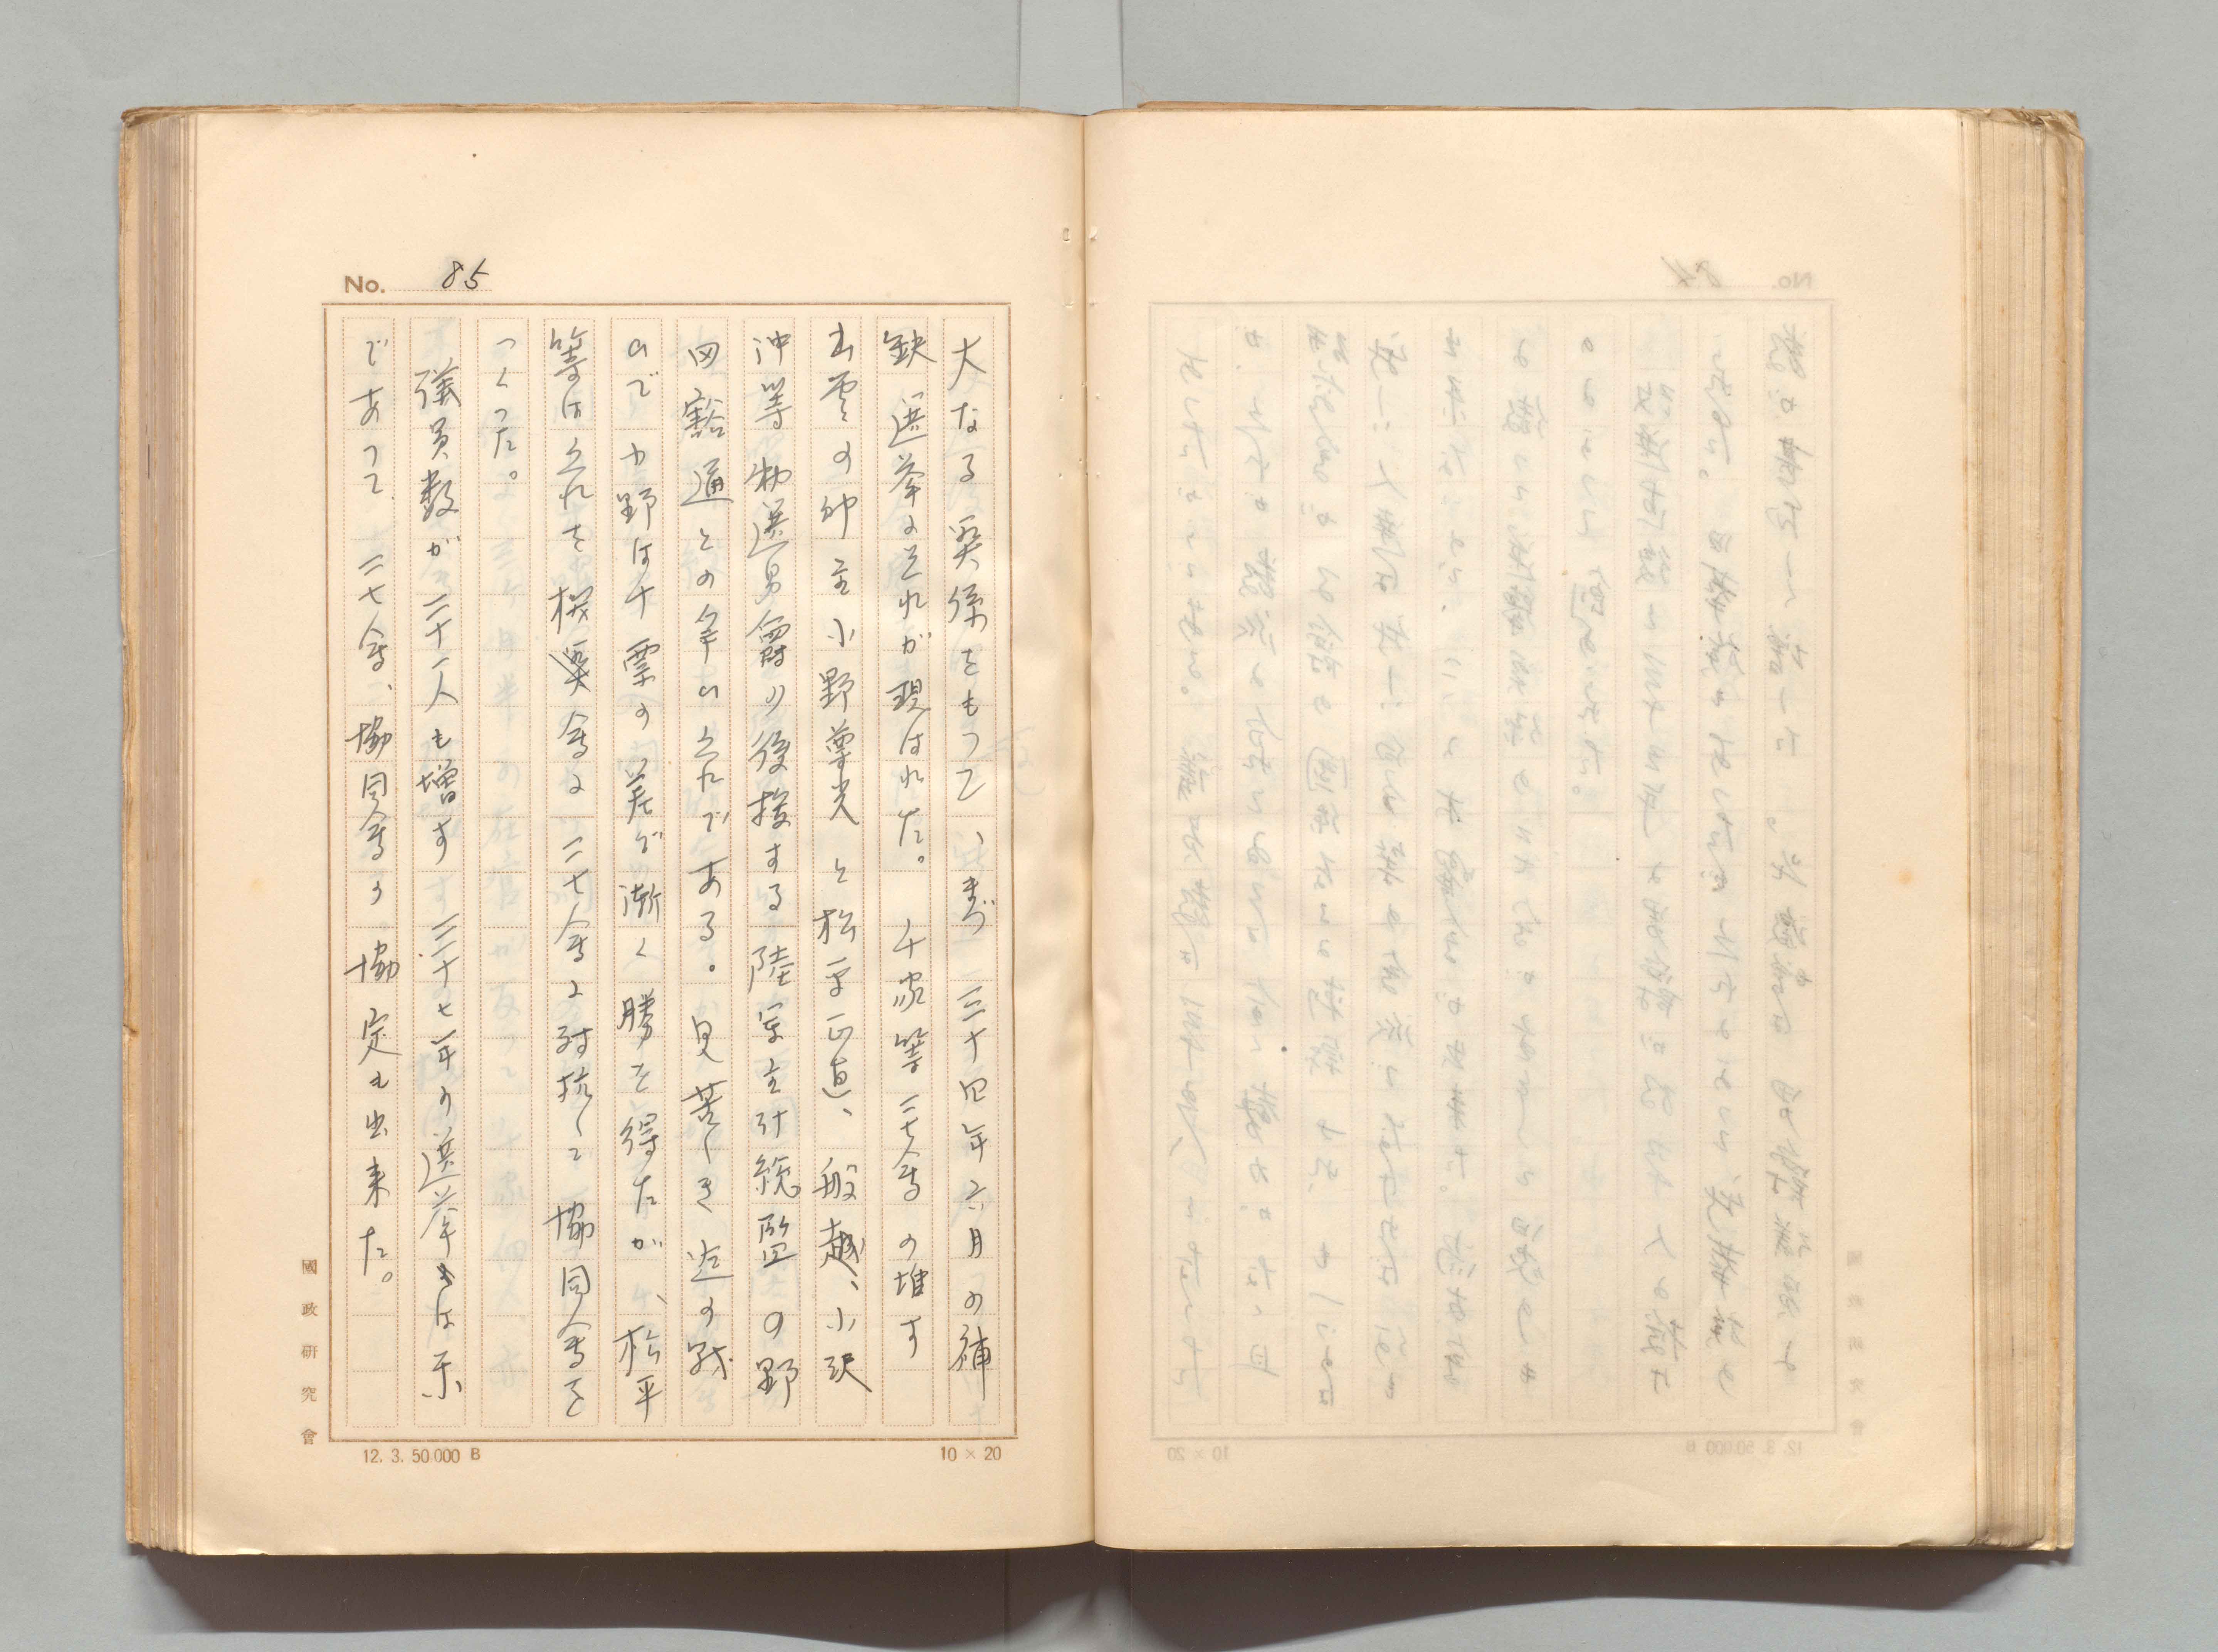 No. 85
大なる契係をもつて、まづ三十四年六月の補
缺選挙にそれが現はれた。千家等二七会の推す
出雲の神主小野尊光と松平正直、船越、小沢
沖等勅選男爵の後援する陸軍主計総監の野
田豁通との争ひこれである。見苦しき迄の戦
ひで小野は十票の差で漸く勝を得たが、松平
等はこれを機契会に二七会に対抗して協同会を
つくつた。
議員数が二十一人も増す三十七年の選挙は示
であつて二七会、協同会の協定も出来た。
國政研究會
12. 3. 50.000 B
10 × 20